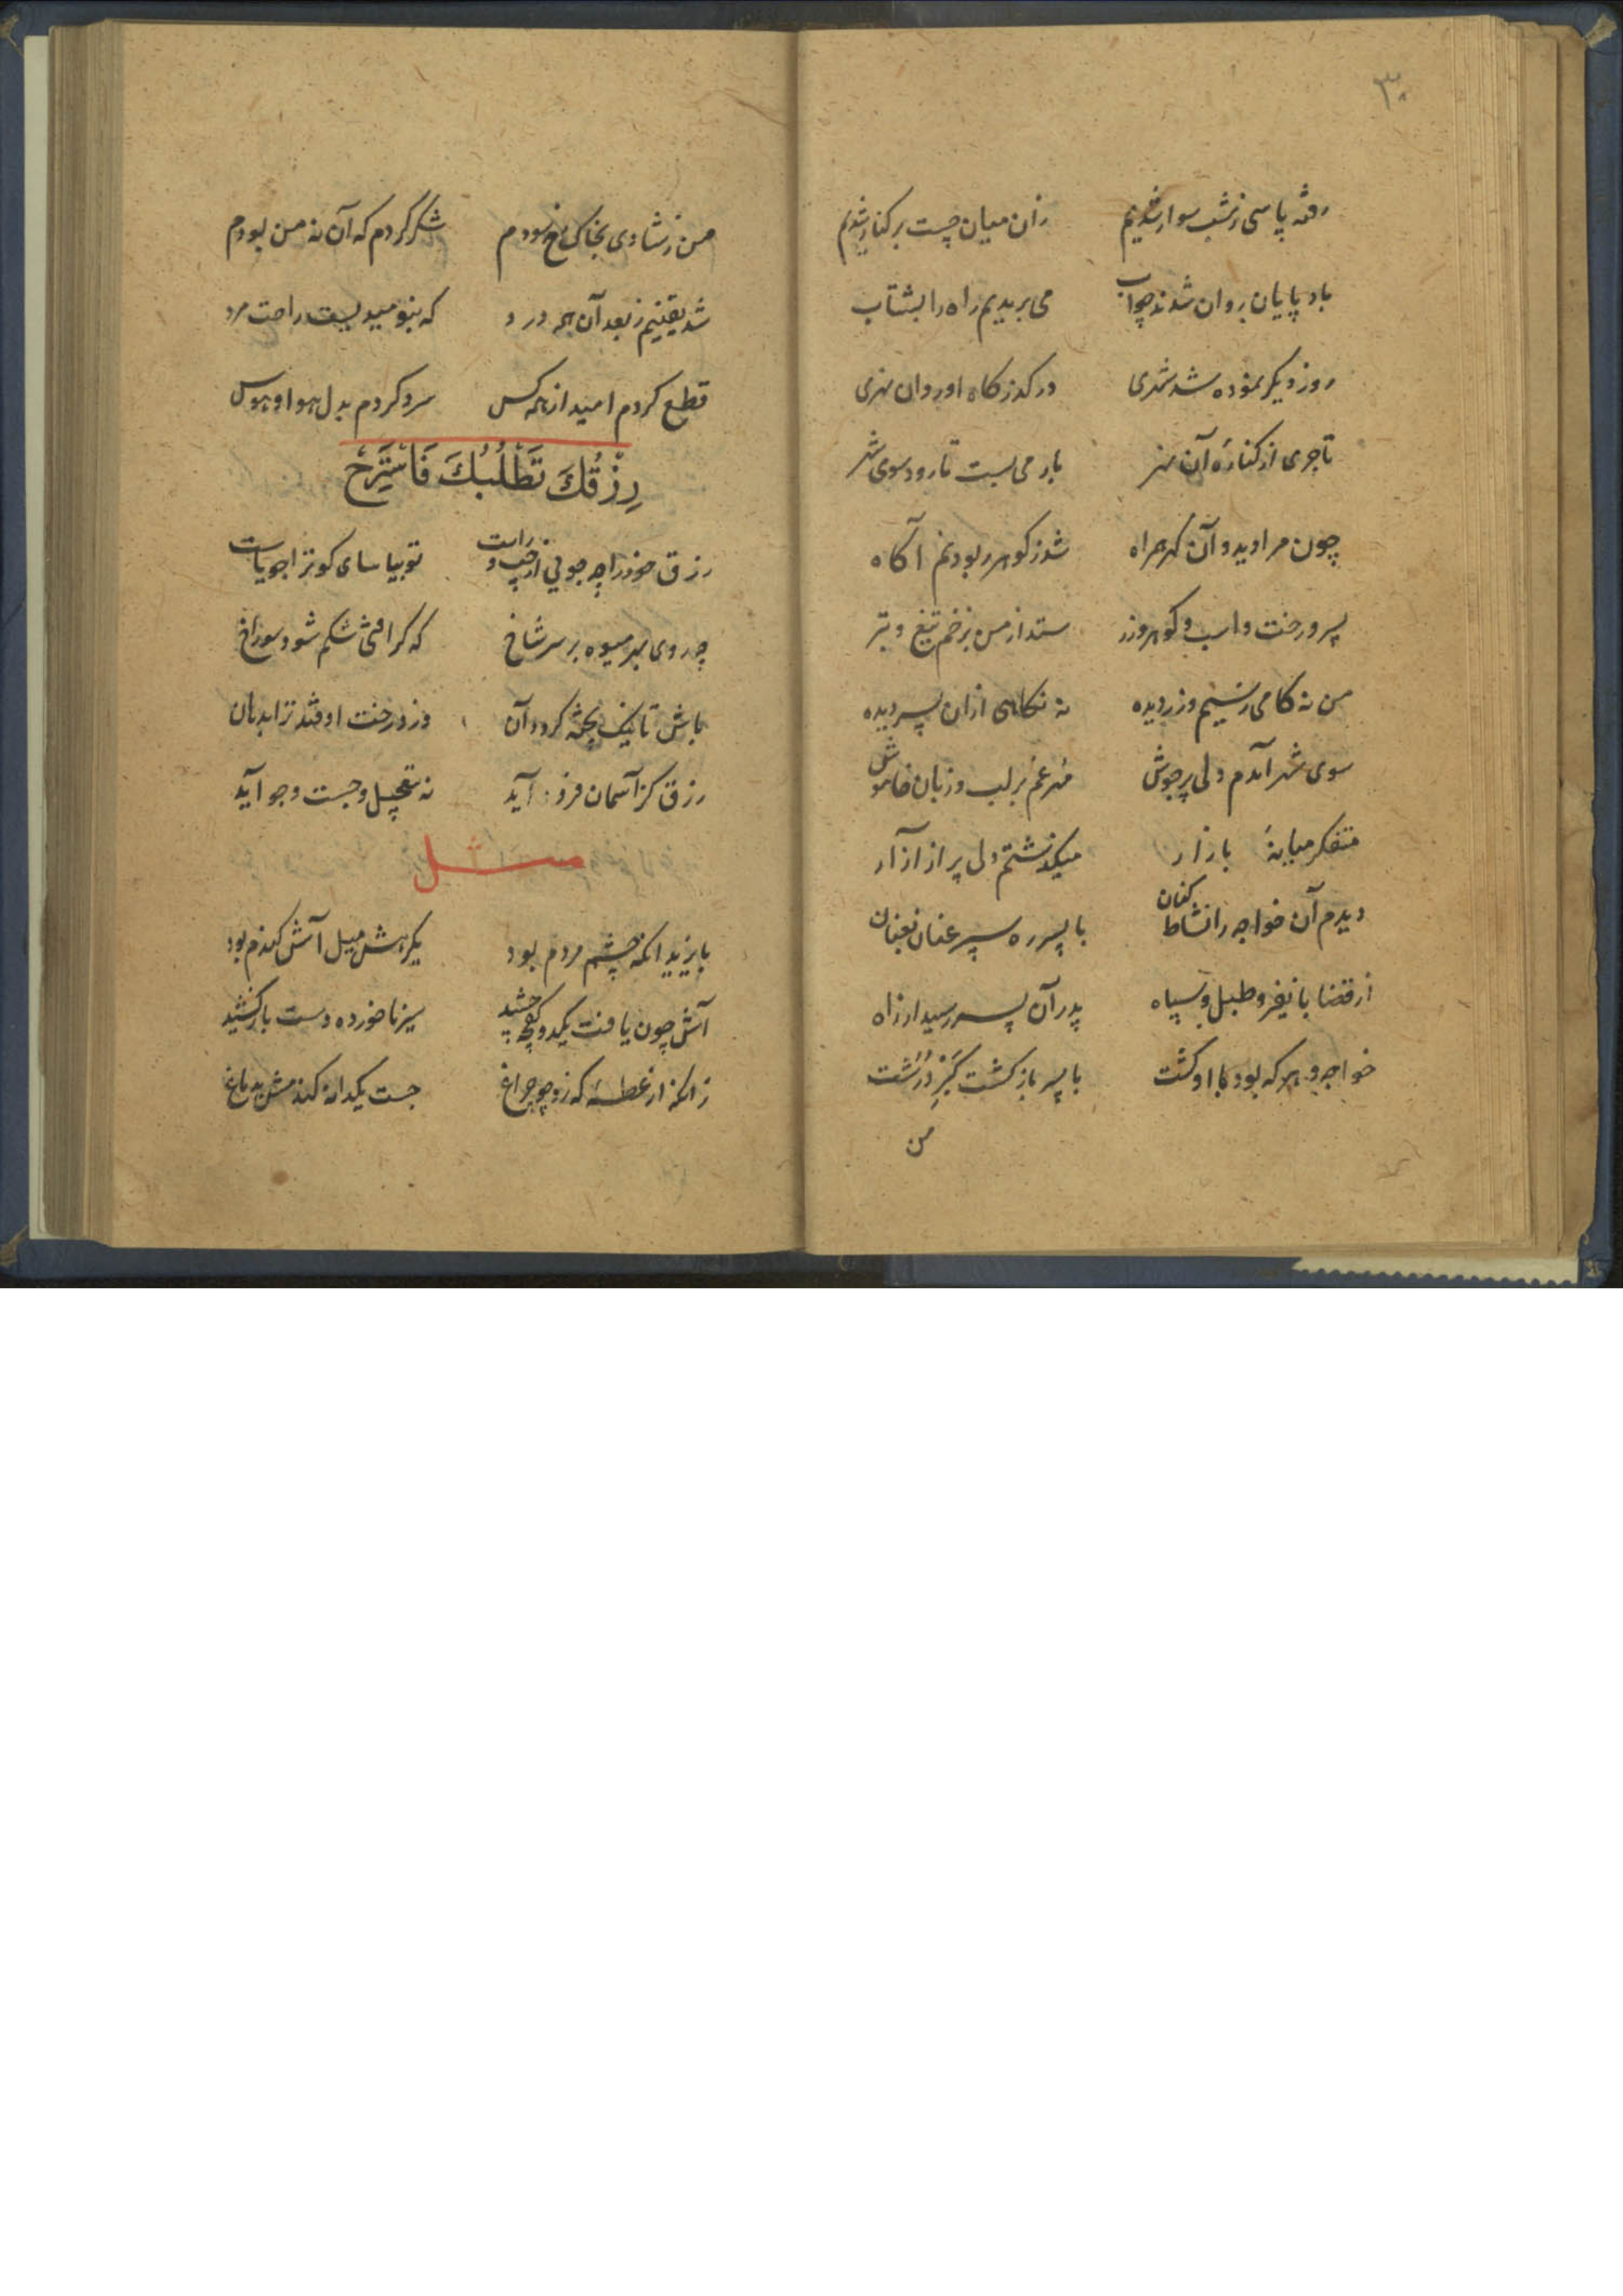 ۳۰
رفته پاسی ز شب سوار شدیم زان میان چست برکنار شدیم
باد پایان روان شدند چو آب می بریدیم راه را بشتاب
روز دیگر نموده شد شهری در گذرگاه او روان نهری
تاجری از کناره آن نهر بار می بست تا رود سوی شهر
چون مرا دید و آن گهر همراه شد ز گوهر ربودنم آگاه
پسر و رخت و اسب و گوهر و زر ستد از من بزخم تیغ و تبر
من نه کامی ز سیم و زر دیده نه نگاهی ازان پسر دیده
سوی شهر آمدم دلی پرجوش مهر غم بر لب و زبان خاموش
متفکر میانهٔ بازار میگذشتم دلی پر از آزار
دیدم آن خواجه را نشاط کنان با پسر ره سپر عنان بعنان
از قضا با نفیر و طبل و سپاه پدر آن پسر رسید از راه
خواجه و هر که بود با او کشت با پسر بازگشت گبر درشت
من
من ز شادی بخاک رخ سودم شکر کردم که آن نه من بودم
شد یقینم ز بعد آن همه درد که بنومیدیست راحت مرد
قطع کردم امید از همه کس سرد کردم بدل هوا و هوس
رِزْقُكَ تَطْلُبُكَ فَاسْتَرِحْ
رزق خود را چه جویی از چپ و راست تو بیاسای کو ترا جویاست
چه روی بهر میوه بر سر شاخ که گر افتی شکم شود سوراخ
باش تا نیک پخته گردد آن وز درخت اوفتد ترا بدهان
رزق کز آسمان فرود آید نه بتعجیل و جست و جو آید
مثل
بایزید آنکه چشم مردم بود یکرهش میل آش گندم بود
آش چون یافت یکدو کفچه چشید سیر ناخورده دست باز کشید
زانکه از عطسهٔ که زد چو چراغ جست یکدانه گندمش بدماغ